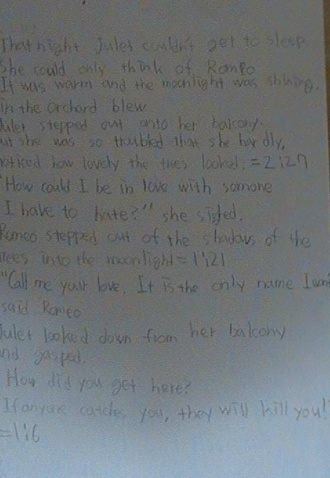 That night Juliet couldn't get to sleep.
She could only think of Romeo
It was warm and the moonlight was shining.
in the orchard blew
Juliet stepped out onto her balcony
but she was so troubled that she hardly,
noticed how lovely the trees looked. = 2:27
"How could I be in love with somone
I have to hate?" she sighed.
Romeo stepped out of the shadows of the
trees into the moonlight = 1:21
"Call me your love. It is the only name I want
said Romeo
Juliet looked down from her balcony
and gasped.
How did you get here?
If anyone catches you, they will kill you!"
=1:6